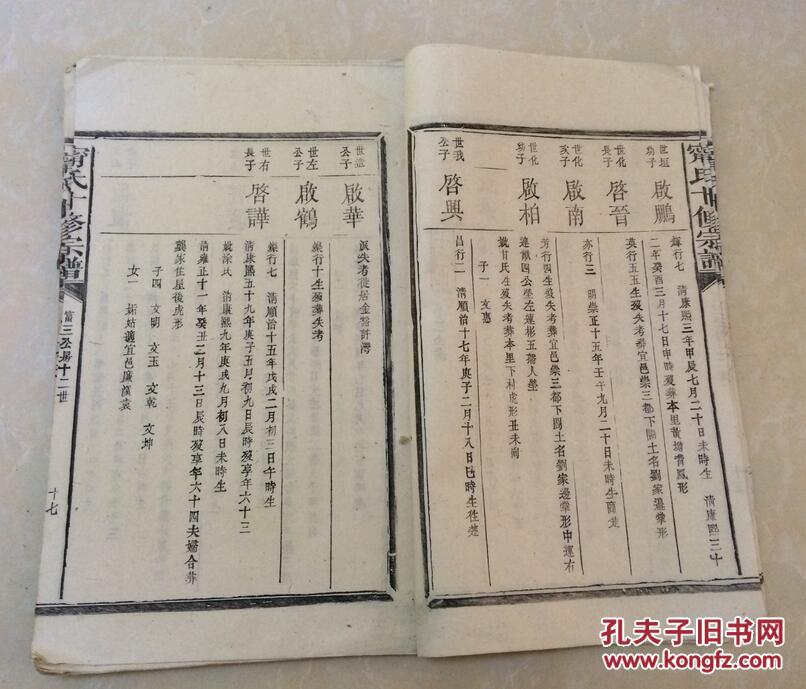 甯氏十修宗譜
世垣幼子
啟鵬
輝行七 清康熙三年甲辰七月二十日未時生 清康熙三十
二年癸酉三月十七日申時歿葬本里黃坳青鳳形
世化長子
啓晉
英行五五生歿失考葬宜邑崇三都下關土名劉家邊掌形
世化次子
啟南
亦行三 明崇正十五年壬午九月二十日未時生
世化幼子
啟柏
芳行四生歿失考葬宜邑崇三都下關土名劉家邊掌形中逕右
逕獻四公塋左逕彬五裔人塋
娶甘氏生歿失考葬本里下村虎形丑未向
子一 文惠
世我公子
啓興
昌行二 清順治十七年庚子二月十八日巳時生往楚
娶失考徙居金谿許灣
世造公子
啟華
樂行十生歿葬失考
世左公子
啟鶴
樂行七 清順治十五年戊戌二月初三日午時生
世右長子
啓譁
清康熙五十九年庚子五月初九日辰時歿享年六十三
娶涂氏 清康熙九年庚戌九月初八日未時生
清雍正十一年癸丑二月十三日辰時歿享年六十四夫婦合葬
龔家住屋後虎形
子四 文明 文玉 文乾 文坤
女一 適宜邑
甯氏十修宗譜
富三公房十二世
十七
孔夫子旧书网
www.kongfz.com